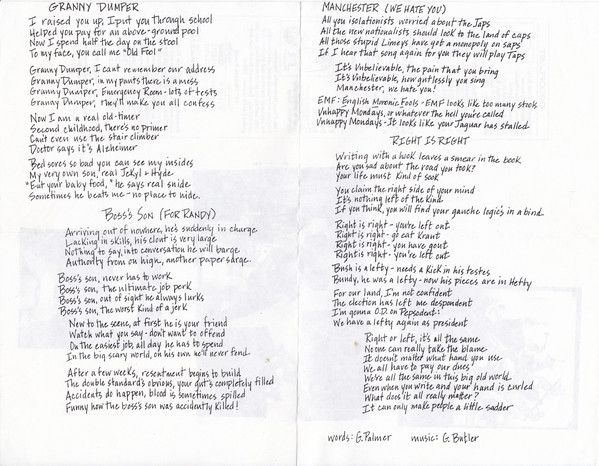 GRANNY DUMPER
I raised you up, I put you through school
Helped you pay for an above-ground pool
Now I spend half the day on the stool
To my face, you call me "Old Fool"
Granny Dumper, I cant remember our address
Granny Dumper, in my pants there is a mess
Granny Dumper, Emergency Room - lots of tests
Granny Dumper, they'll make you all confess
Now I am a real old-timer
Second childhood, there's no primer
Can't even use the stair climber
Doctor says it's Alzheimer
Bed sores so bad you can see my insides
My very own son, real Jekyl & Hyde
"Eat your baby food," he says real snide
Sometimes he beats me - no place to hide.
BOSS'S SON (FOR RANDY)
Arriving out of nowhere, he's suddenly in charge
Lacking in skills, his clout is very large
Nothing to say, into conversation he will barge
Authority from on high, another paper sarge.
Boss's son, never has to work
Boss's son, the ultimate job perk
Boss's son, out of sight he always lurks
Boss's son, the worst kind of a jerk
New to the scene, at first he is your friend
Watch what you say - don't want to offend
On the easiest job, all day he has to spend
In the big scary world, on his own he'll never fend.
After a few weeks, resentment begins to build
The double standard's obvious, your gut's completely filled
Accidents do happen, blood is sometimes spilled
Funny how the boss's son was accidently killed!
MANCHESTER (WE HATE YOU)
All you isolationists worried about the Japs
All the new nationalists should look to the land of caps
All those stupid Limeys have got a monopoly on saps
If I hear that song again for you they will play Taps
It's Unbelievable, the pain that you bring
It's Unbelievable, how gutlessly you sing
Manchester, we hate you!
EMF: English Moronic Fools - EMF looks like too many stools
Unhappy Mondays, or whatever the hell you're called
Unhappy Mondays - It looks like your Jaguar has stalled.
RIGHT IS RIGHT
Writing with a hook leaves a smear in the book
Are you sad about the road you took?
Your life must kind of sook
You claim the right side of your mind
It's nothing left of the kind
If you think, you will find your gauche logic's in a bind.
Right is right - you're left out
Right is right - go eat kraut
Right is right - you have gout
Right is right - you're left out.
Bush is a lefty - needs a kick in his testes
Bundy, he was a lefty - now his pieces are in Hefty
For our land, I'm not confident
The election has left me despondent
I'm gonna O.D. on Pepsodent:
We have a lefty again as president
Right or left, it's all the same
No one can really take the blame
It doesn't matter what hand you use
We all have to pay our dues
We're all the same in this big old world
Even when you write and your hand is curled
What does it all really matter?
It can only make people a little sadder
words: G. Palmer music: G. Butler